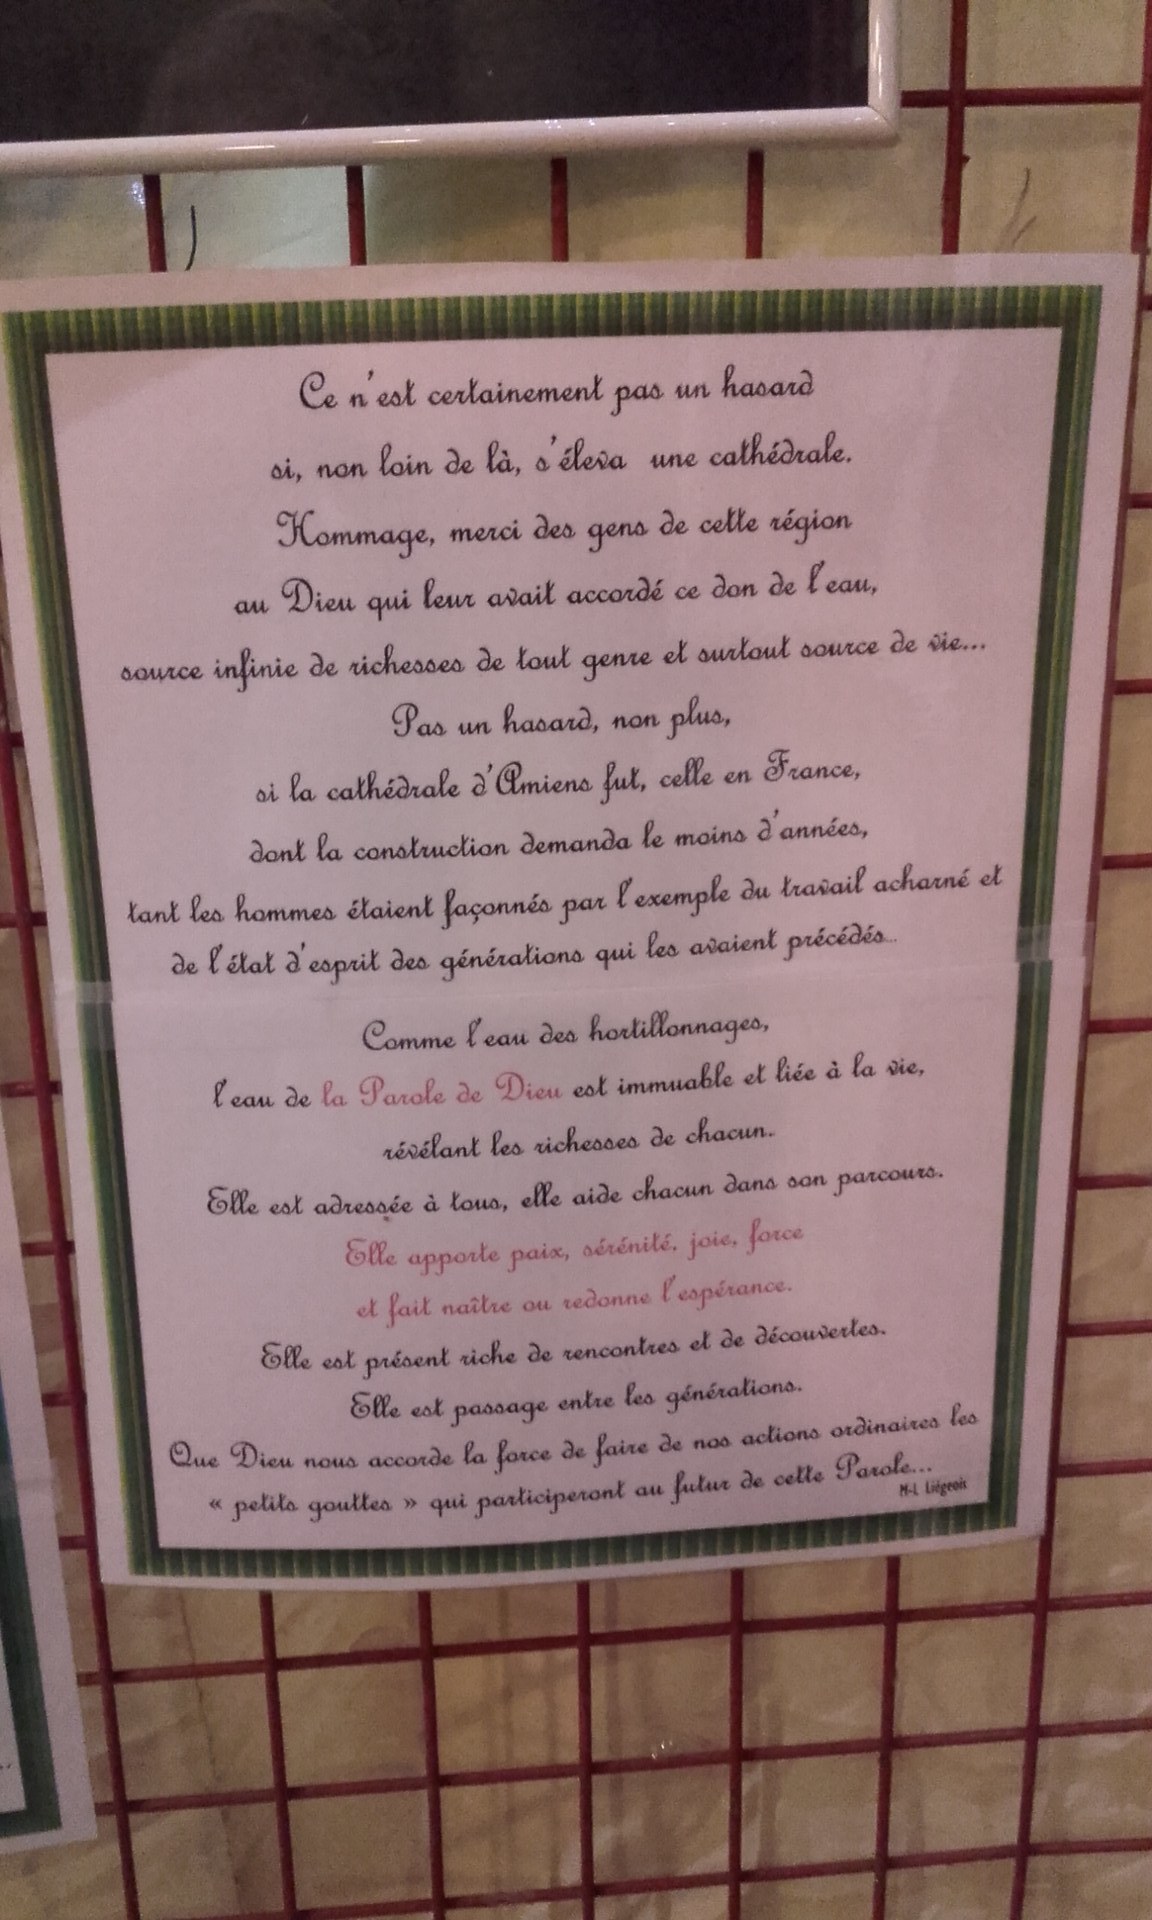 Ce n'est certainement pas un hasard
si, non loin de là, s'éleva une cathédrale.
Hommage, merci des gens de cette région
au Dieu qui leur avait accordé ce don de l'eau,
source infinie de richesses de tout genre et surtout source de vie...
Pas un hasard, non plus,
si la cathédrale d'Amiens fut, celle en France,
dont la construction demanda le moins d'années,
tant les hommes étaient façonnés par l'exemple du travail acharné et
de l'état d'esprit des générations qui les avaient précédés...
Comme l'eau des hortillonnages,
l'eau de la Parole de Dieu est immuable et liée à la vie,
révélant les richesses de chacun.
Elle est adressée à tous, elle aide chacun dans son parcours.
Elle apporte paix, sérénité, joie, force
et fait naître ou redonne l'espérance.
Elle est présent riche de rencontres et de découvertes.
Elle est passage entre les générations.
Que Dieu nous accorde la force de faire de nos actions ordinaires les
« petits gouttes » qui participeront au futur de cette Parole...
M-L Liégeois